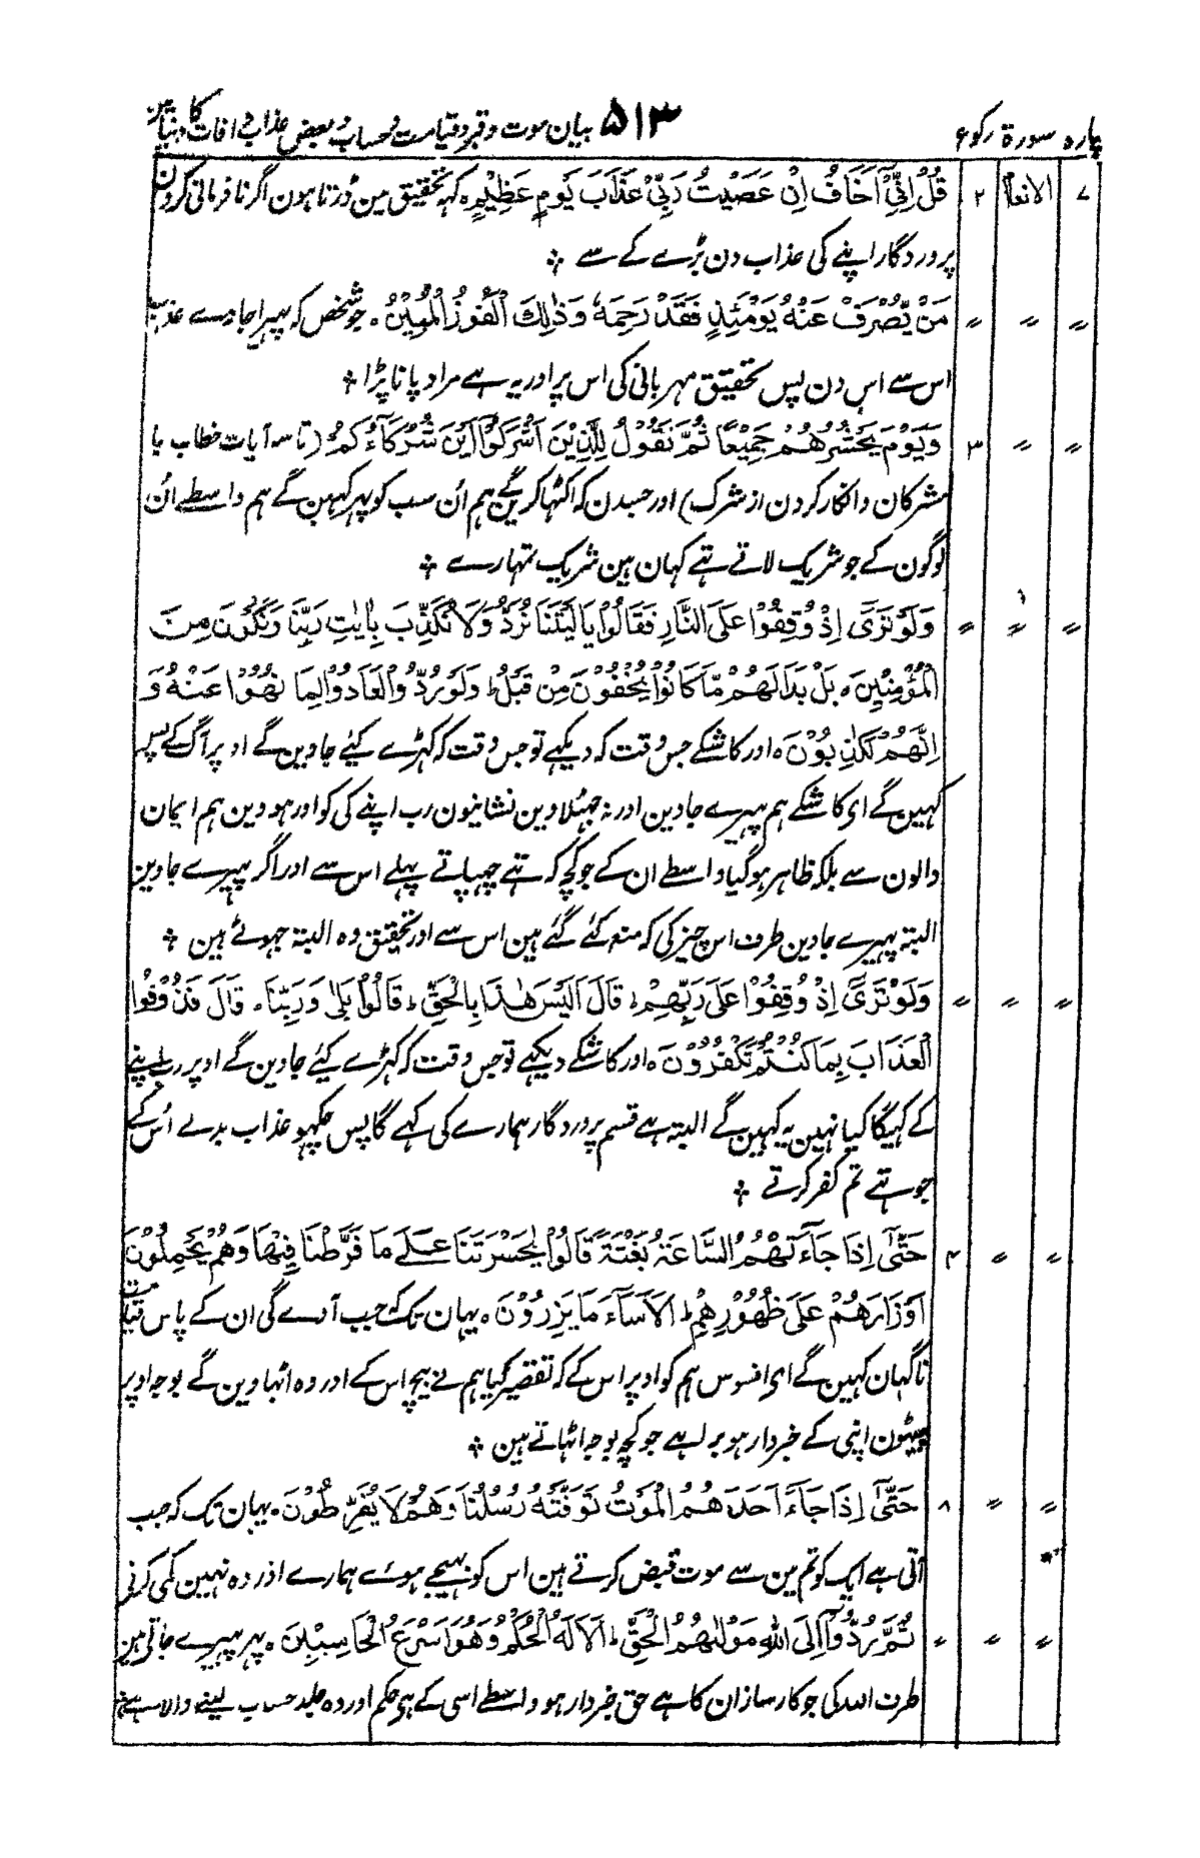 پارہ سورۃ رکوع ۵۱۳ بیان موت و قبر و قیامت و حساب و بعض عذاب و افات کا دنیا مین
۷ الانعام ۲ قُلْ اِنِّیْۤ اَخَافُ اِنْ عَصَیْتُ رَبِّیْ عَذَابَ یَوْمٍ عَظِیْمٍ ہ کہہ تحقیق مین ڈرتا ہون اگر نافرمانی کرون
پروردگار اپنے کی عذاب دن بڑے کے سے ؞
〃 〃 〃 مَنْ یُّصْرَفْ عَنْهُ یَوْمَئِذٍ فَقَدْ رَحِمَهٗ وَذٰلِكَ الْفَوْزُ الْمُبِیْنُ ہ جو شخص کہ پہیرا جاوے عذاب
اس سے اس دن پس تحقیق مہربانی کی اس پر اور یہ ہے مراد پانا بڑا ؞
〃 〃 ۳ وَیَوْمَ نَحْشُرُهُمْ جَمِیْعًا ثُمَّ نَقُوْلُ لِلَّذِیْنَ اَشْرَكُوْۤا اَیْنَ شُرَكَآؤُكُمُ (تا سہ آیات خطاب با
مشرکان و انکار کردن از شرک) اور جسدن کہ اکٹہا کرینگے ہم اُن سب کو پہر کہین گے ہم واسطے اُن
لوگون کے جو شریک لاتے تہے کہان ہین شریک تمہارے ؞
〃 〃 〃 وَلَوْ تَرٰۤی اِذْ وُقِفُوْا عَلَی النَّارِ فَقَالُوْا یَالَیْتَنَا نُرَدُّ وَلَا نُكَذِّبَ بِاٰیٰتِ رَبِّنَا وَنَكُوْنَ مِنَ
الْمُؤْمِنِیْنَ ہ بَلْ بَدَا لَهُمْ مَّا كَانُوْا یُخْفُوْنَ مِنْ قَبْلُ ط وَلَوْ رُدُّوْا لَعَادُوْا لِمَا نُهُوْا عَنْهُ وَ
اِنَّهُمْ لَكٰذِبُوْنَ ہ اور کاشکے جس وقت کہ دیکہے تو جس وقت کہ کہڑے کیئے جاوین گے اوپر آگ کے پس
کہین گے ای کاشکے ہم پہیرے جاوین اور نہ جہٹلاوین نشانیون رب اپنے کی کو اور ہووین ہم ایمان
والون سے بلکہ ظاہر ہو گیا واسطے ان کے جو کچہ کہ تہے چہپاتے پہلے اس سے اور اگر پہیرے جاوین
البتہ پہیرے جاوین طرف اس چیز کی کہ منع کئے گئے ہین اس سے اور تحقیق وہ البتہ جہوٹے ہین ؞
〃 〃 〃 وَلَوْ تَرٰۤی اِذْ وُقِفُوْا عَلٰی رَبِّهِمْ ط قَالَ اَلَیْسَ هٰذَا بِالْحَقِّ ط قَالُوْا بَلٰی وَرَبِّنَا ط قَالَ فَذُوْقُوا
الْعَذَابَ بِمَا كُنْتُمْ تَكْفُرُوْنَ ہ اور کاشکے دیکہے تو جس وقت کہ کہڑے کیئے جاوین گے اوپر رب اپنے
کے کہیگا کیا نہین یہ کہین گے البتہ ہے قسم پروردگار ہمارے کی کہے گا پس چکہو عذاب بدلے اُس کے
جو تہے تم کفر کرتے ؞
〃 〃 ۴ حَتّٰۤی اِذَا جَآءَتْهُمُ السَّاعَةُ بَغْتَةً قَالُوْا یٰحَسْرَتَنَا عَلٰی مَا فَرَّطْنَا فِیْهَا وَهُمْ یَحْمِلُوْنَ
اَوْزَارَهُمْ عَلٰی ظُهُوْرِهِمْ ط اَلَا سَآءَ مَا یَزِرُوْنَ ہ یہان تک کہ جب آوے گی ان کے پاس قیامت
ناگہان کہین گے ای افسوس ہم کو اوپر اس کے کہ تقصیر کیا ہم نے بیچ اس کے اور وہ اٹہاوین گے بوجہ اوپر
پیٹہون اپنی کے خبردار ہو برا ہے جو کچہ بوجہ اٹہاتے ہین ؞
〃 〃 ۸ حَتّٰۤی اِذَا جَآءَ اَحَدَهُمُ الْمَوْتُ تَوَفَّتْهُ رُسُلُنَا وَهُمْ لَا یُفَرِّطُوْنَ ہ یہان تک کہ جب
آتی ہے ایک کو تم مین سے موت قبض کرتے ہین اس کو بہیجے ہوئے ہمارے اور وہ نہین کمی کرتی
〃 〃 〃 ثُمَّ رُدُّوْۤا اِلَی اللّٰهِ مَوْلٰهُمُ الْحَقِّ ط اَلَا لَهُ الْحُكْمُ وَهُوَ اَسْرَعُ الْحَاسِبِیْنَ ہ پہر پہیرے جاتی ہین
طرف اللہ کی جو کارساز ان کا ہے حق خبردار ہو واسطے اسی کے ہی حکم اور وہ جلد حساب لینے والا ہے